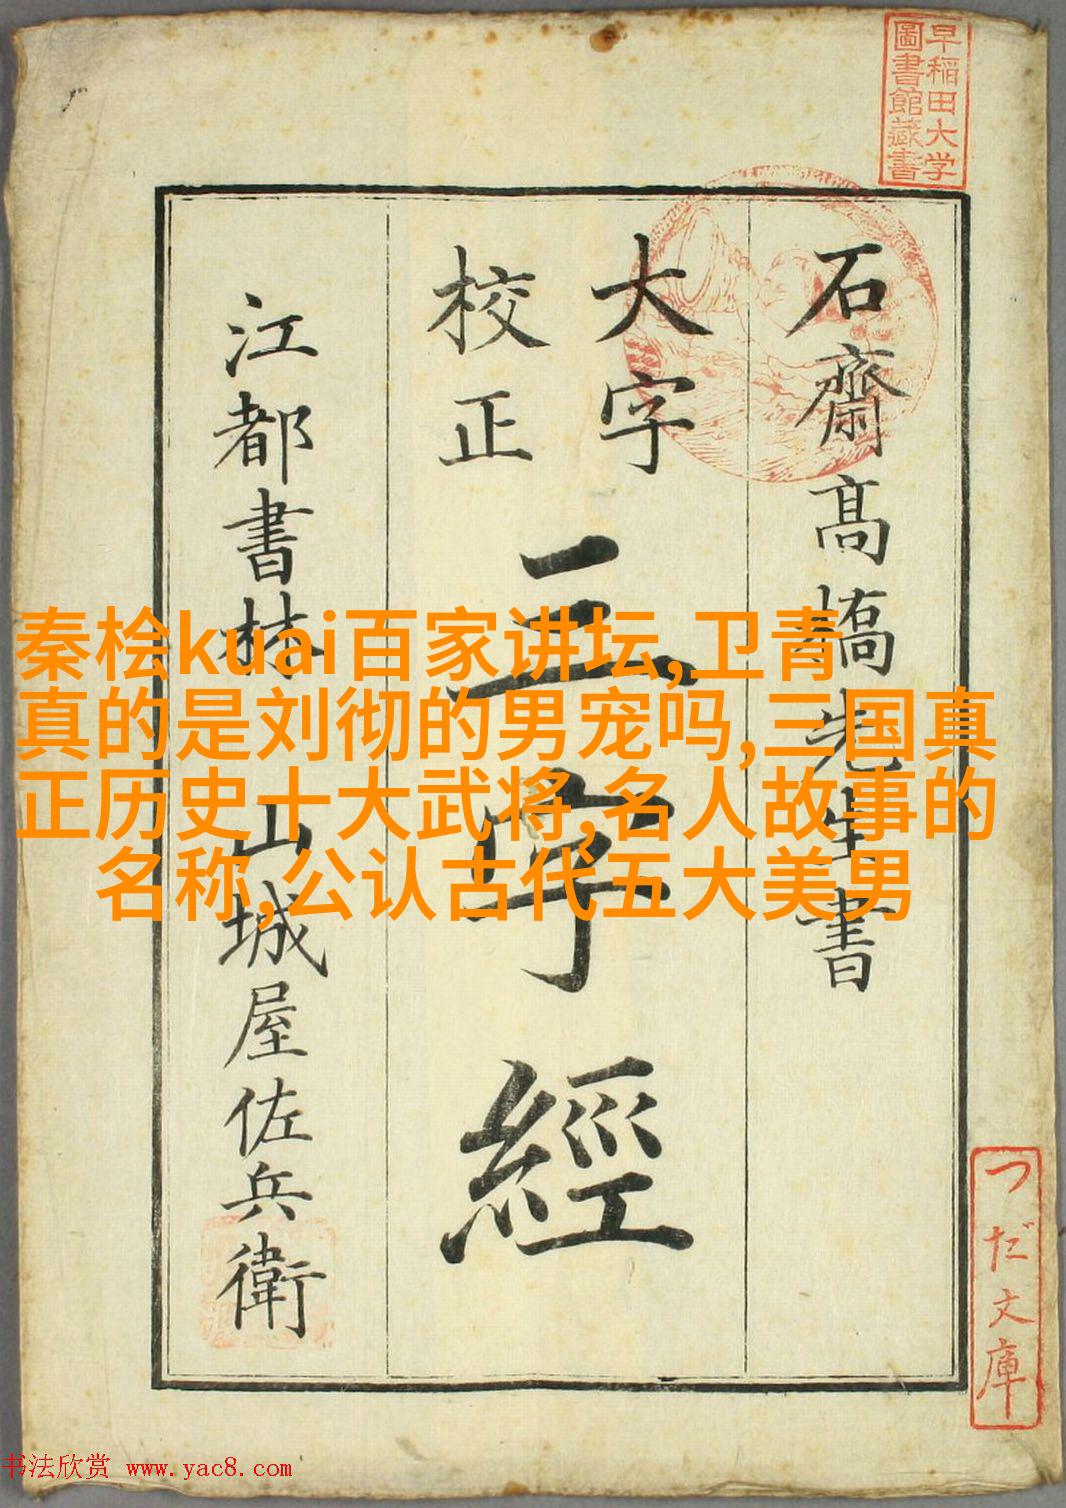 早稲田大学
圖書館藏書
石齋髙橋先生書
大字
校正
三字經
江都書林 山城屋佐兵衛
秦桧kuai百家讲坛,卫青
真的是刘彻的男宠吗,三国真
正历史十大武将,名人故事的
名称,公认古代五大美男
つだ文庫
书法欣赏 www.yac8.com